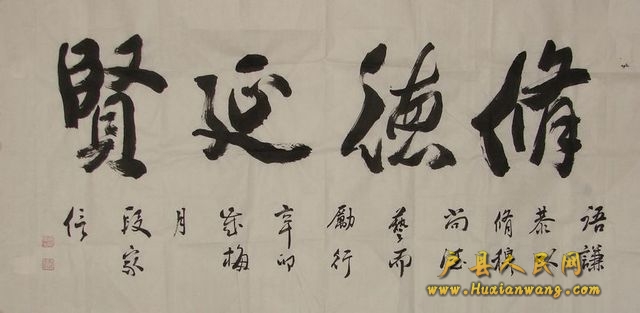 脩德延賢
語謙
恭以
脩穆
尚德
藝而
勵行
辛卯
歲梅
月
段家
信
户县人民网
www.Huxianwang.com